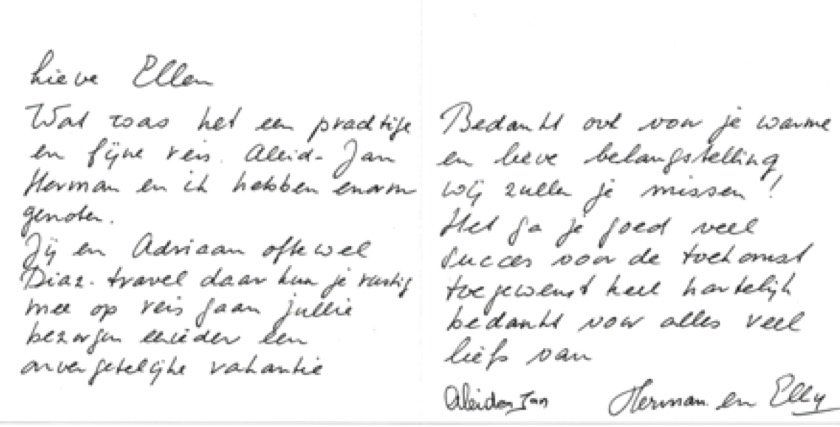 Lieve Ellen
Wat was het een prachtige
en fijne reis. Aleid-Jan
Herman en ik hebben enorm
genoten.
Jij en Adriaan oftewel
Diaz-travel daar kun je rustig
mee op reis gaan jullie
bezorgen eenieder een
onvergetelijke vakantie
Bedankt ook voor je warme
en lieve belangstelling
wij zullen je missen!
Het ga je goed veel
succes voor de toekomst
toegewenst heel hartelijk
bedankt voor alles veel
liefs van
Aleid en Jan Herman en Elly